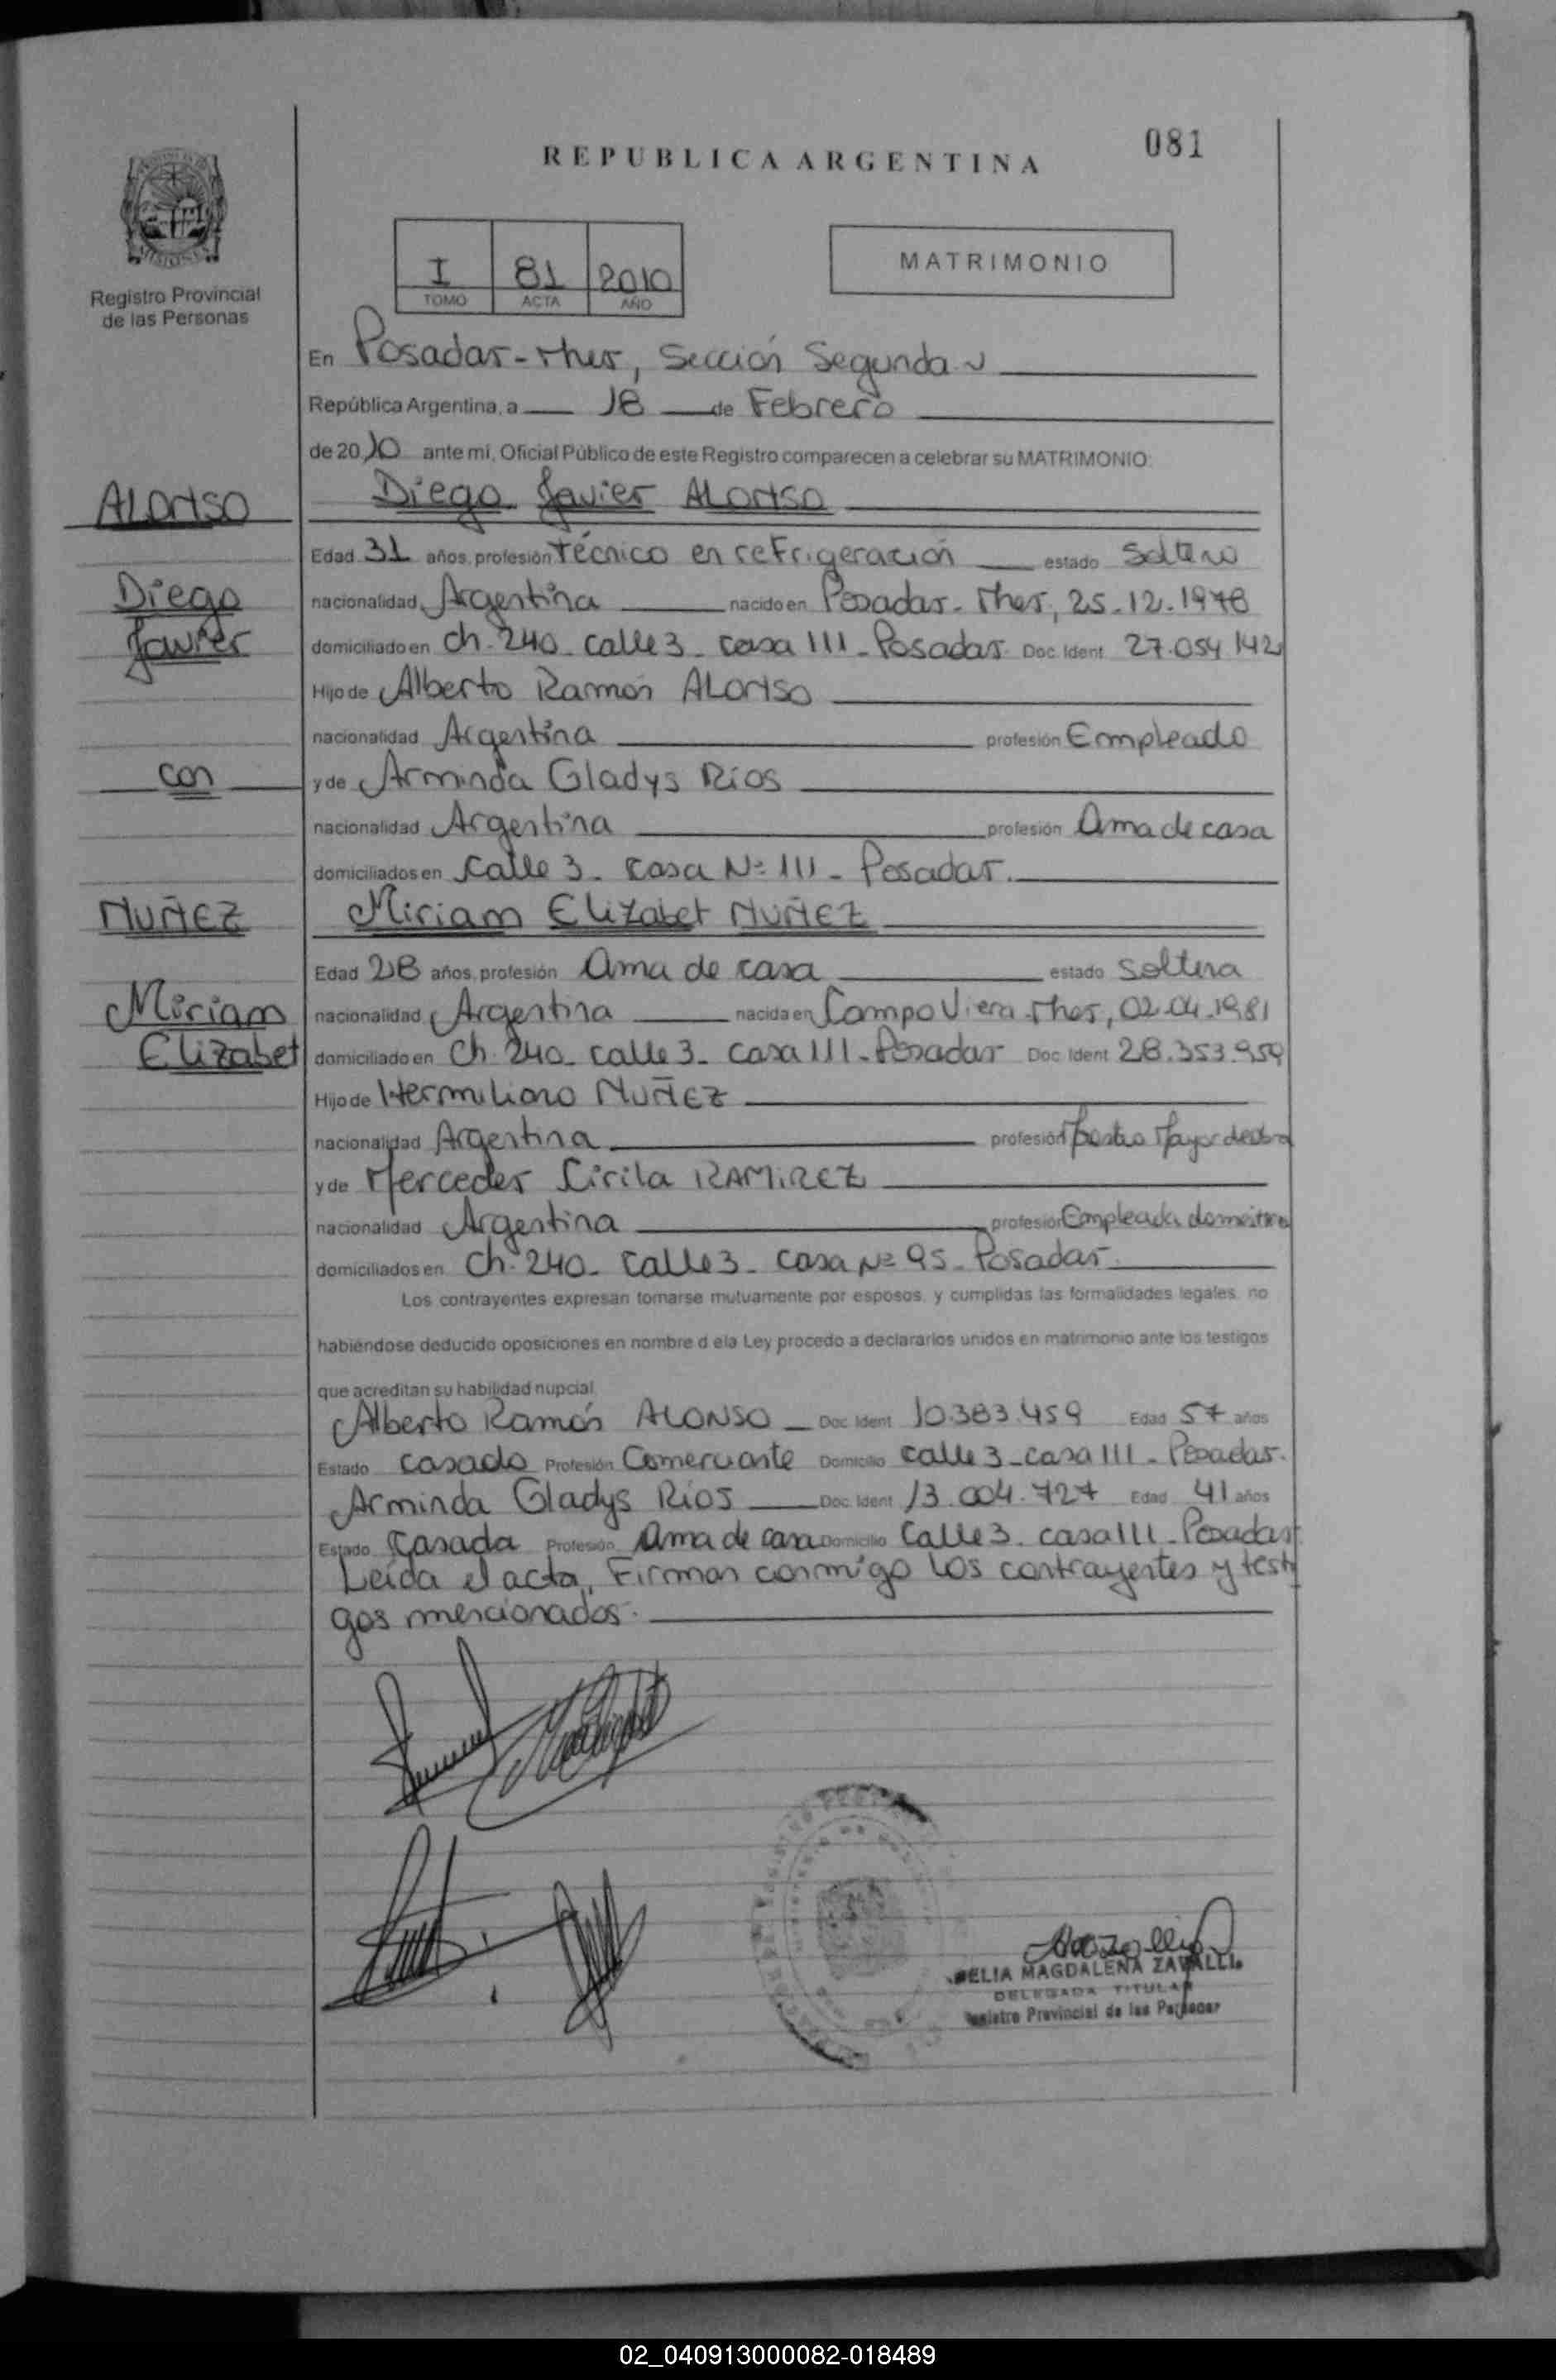 REPUBLICA ARGENTINA
081
Registro Provincial
de las Personas
I 81 2010
TOMO ACTA AÑO
MATRIMONIO
En Posadas-Mnes, Sección Segunda
República Argentina, a 18 de Febrero
de 2010 ante mi, Oficial Público de este Registro comparecen a celebrar su MATRIMONIO:
ALONSO Diego Javier ALONSO
Edad 31 años, profesión Técnico en refrigeración estado Soltero
Diego nacionalidad Argentina nacido en Posadas-Mnes, 25-12-1978
Javier domiciliado en Ch. 240-calle 3-casa 111-Posadas Doc. Ident. 27.054.142
Hijo de Alberto Ramón ALONSO
nacionalidad Argentina profesión Empleado
con y de Arminda Gladys Ríos
nacionalidad Argentina profesión Ama de casa
domiciliados en Calle 3-casa Nº 111-Posadas.
NUÑEZ Miriam Elizabet NUÑEZ
Edad 28 años, profesión Ama de casa estado Soltera
Miriam nacionalidad Argentina nacida en Campo Viera-Mnes, 02-04-1981
Elizabet domiciliado en Ch. 240-calle 3-casa 111-Posadas Doc. Ident. 28.353.959
Hijo de Hermiliano NUÑEZ
nacionalidad Argentina profesión Maestro Mayor de obra
y de Mercedes Cirila RAMIREZ
nacionalidad Argentina profesión Empleada doméstica
domiciliados en Ch. 240-Calle 3-casa Nº 95-Posadas.
Los contrayentes expresan tomarse mutuamente por esposos, y cumplidas las formalidades legales, no
habiéndose deducido oposiciones en nombre d ela Ley procedo a declararlos unidos en matrimonio ante los testigos
que acreditan su habilidad nupcial
Alberto Ramón ALONSO Doc. Ident. 10.383.459 Edad 57 años
Estado casado Profesión Comerciante Domicilio calle 3-casa 111-Posadas.
Arminda Gladys Ríos Doc. Ident. 13.004.727 Edad 41 años
Estado Casada Profesión Ama de casa Domicilio Calle 3-casa 111-Posadas
Leída el acta, Firman conmigo los contrayentes y testi
gos mencionados.
MAGDALENA ZAVALLI
DELEGADA TITULAR
Registro Provincial de las Personas
02_040913000082-018489